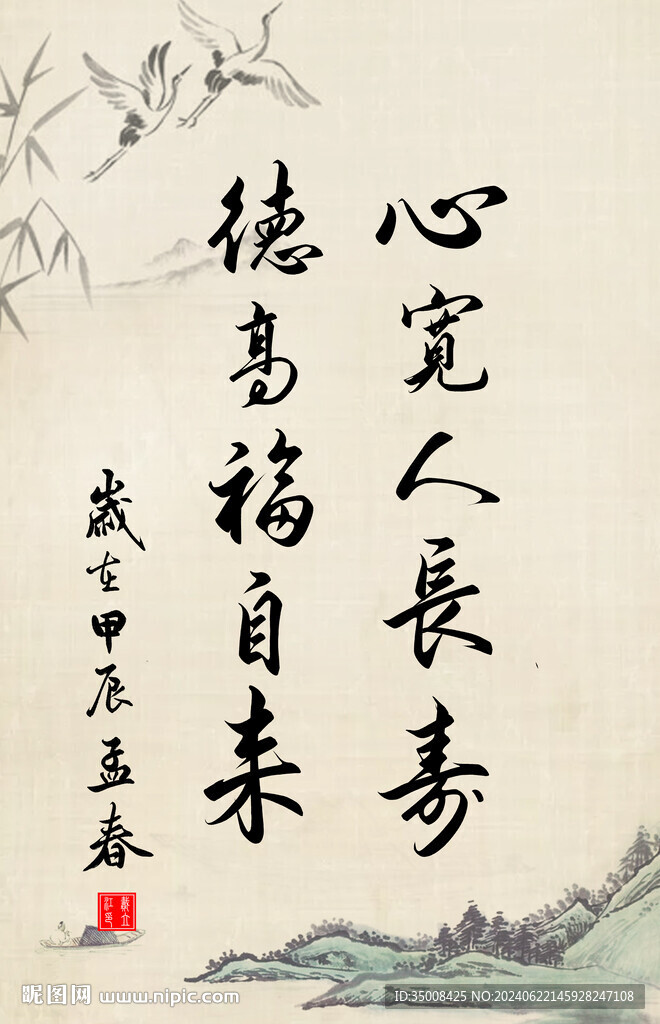 心寬人長壽
德高福自来
歲在甲辰孟春
昵图网 www.nipic.com
ID:35008425 NO:20240622145928247108